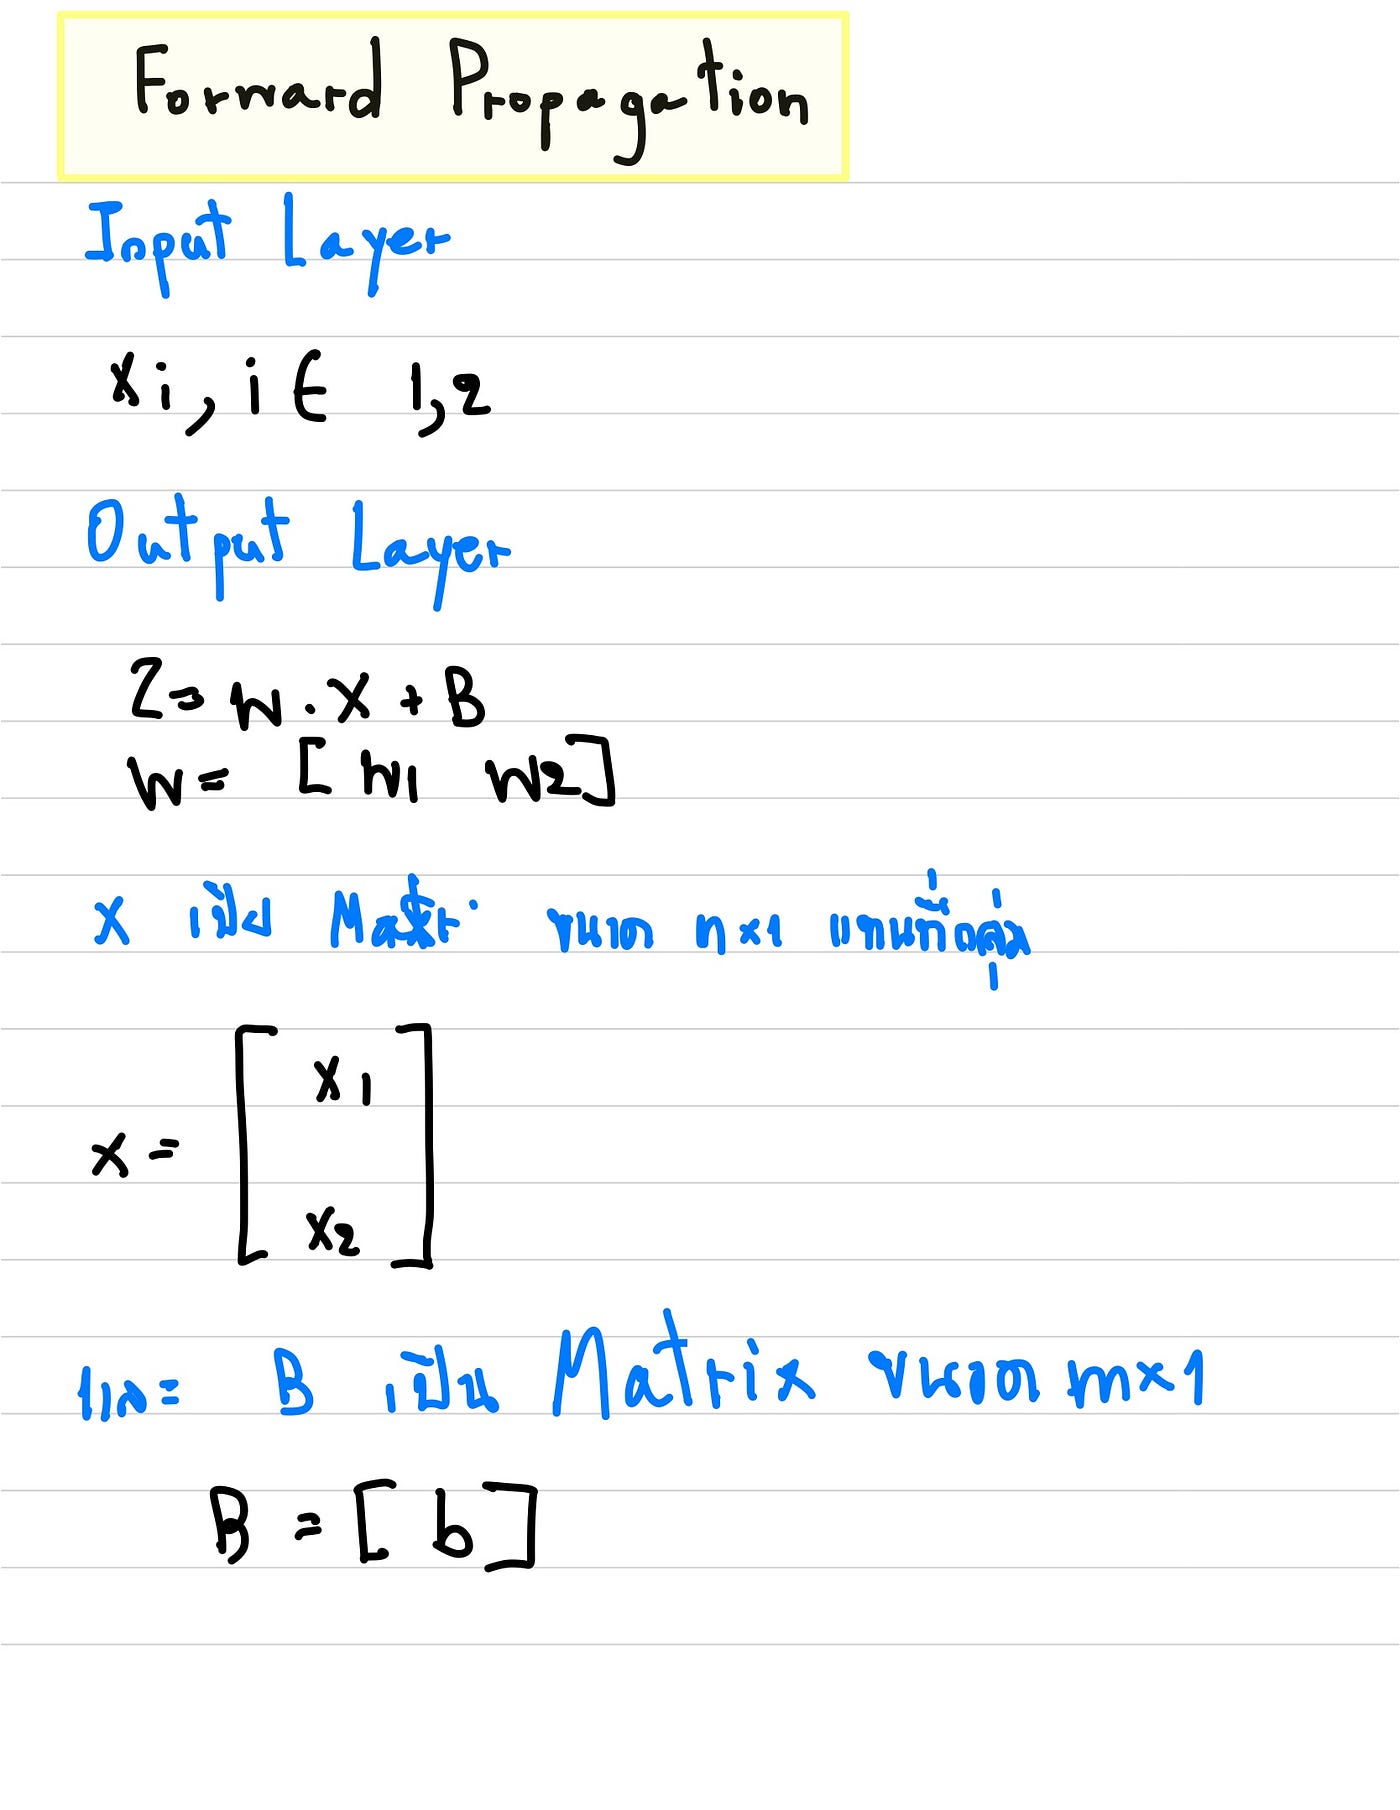 Forward Propagation
Input Layer
xi, i ∈ 1,2
Output Layer
Z = W . X + B
W = [ W1 W2 ]
X เป็น ขนาด n×1
x = [ x1
x2 ]
และ B เป็น Matrix ขนาด m×1
B = [ b ]